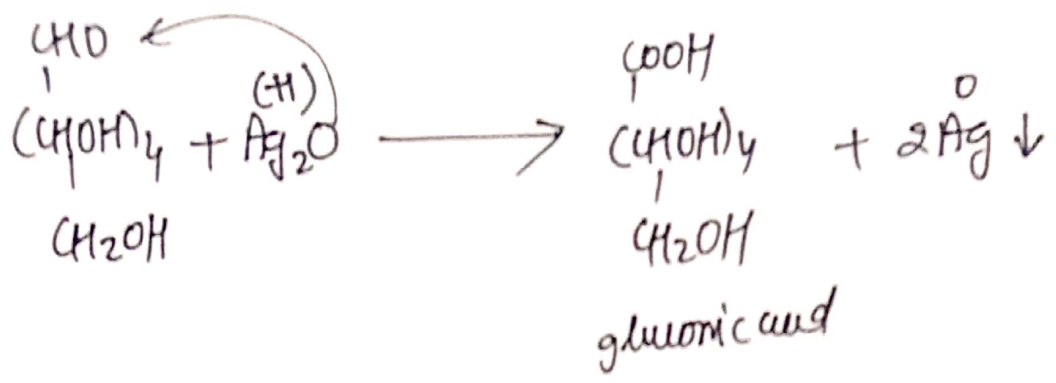 CHO
(CHOH)4 + Ag2O (+1) ⟶
CH2OH
COOH
(CHOH)4 + 2Ag 0 ↓
CH2OH
gluconic acid